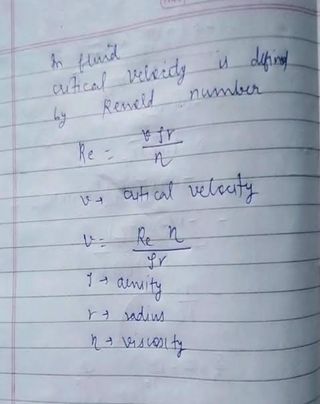 In fluid
critical velocity is defined
by Renold number
Re = vρr/η
v → critical velocity
v = Re η/ρr
ρ → density
r → radius
η → viscosity